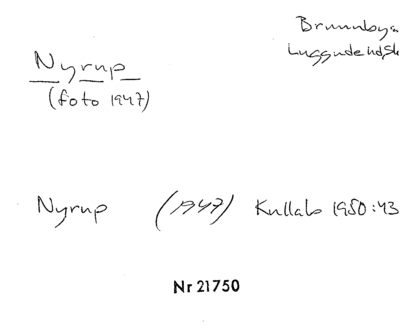 Brunnbys
Luggude hd, Sk
Nyrup
(foto 1947)
Nyrup (1947) Kullabo 1950:43
Nr 21750